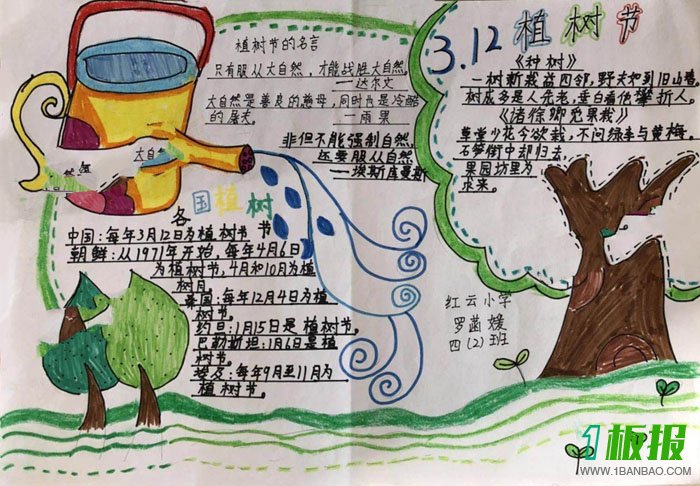 3.12 植树节
植树节的名言
只有服从大自然,才能战胜大自然。
——达尔文
大自然是善良的慈母,同时也是冷酷
的屠夫。 ——雨果
非但不能强制自然,
还要服从自然。
——埃斯库曼斯
大自然
《种树》
一树新栽益四邻,野夫如到旧山春。
树成多是人先老,垂白看他攀折人。
《诸徐卿觅果栽》
草堂少花今欲栽,不问绿李与黄梅。
石笋街中却归去
果园坊里为
求来。
各国植树节
中国:每年3月12日为植树节
朝鲜:从1971年开始,每年4月6日
为植树节,4月和10月为植
树月。
泰国:每年12月4日为植
树节。
约旦:1月15日是植树节。
巴勒斯坦:1月6日是植
树节。
埃及:每年9月至11月为
植树节。
红云小学
罗菡媛
四(2)班
1板报
WWW.1BANBAO.COM